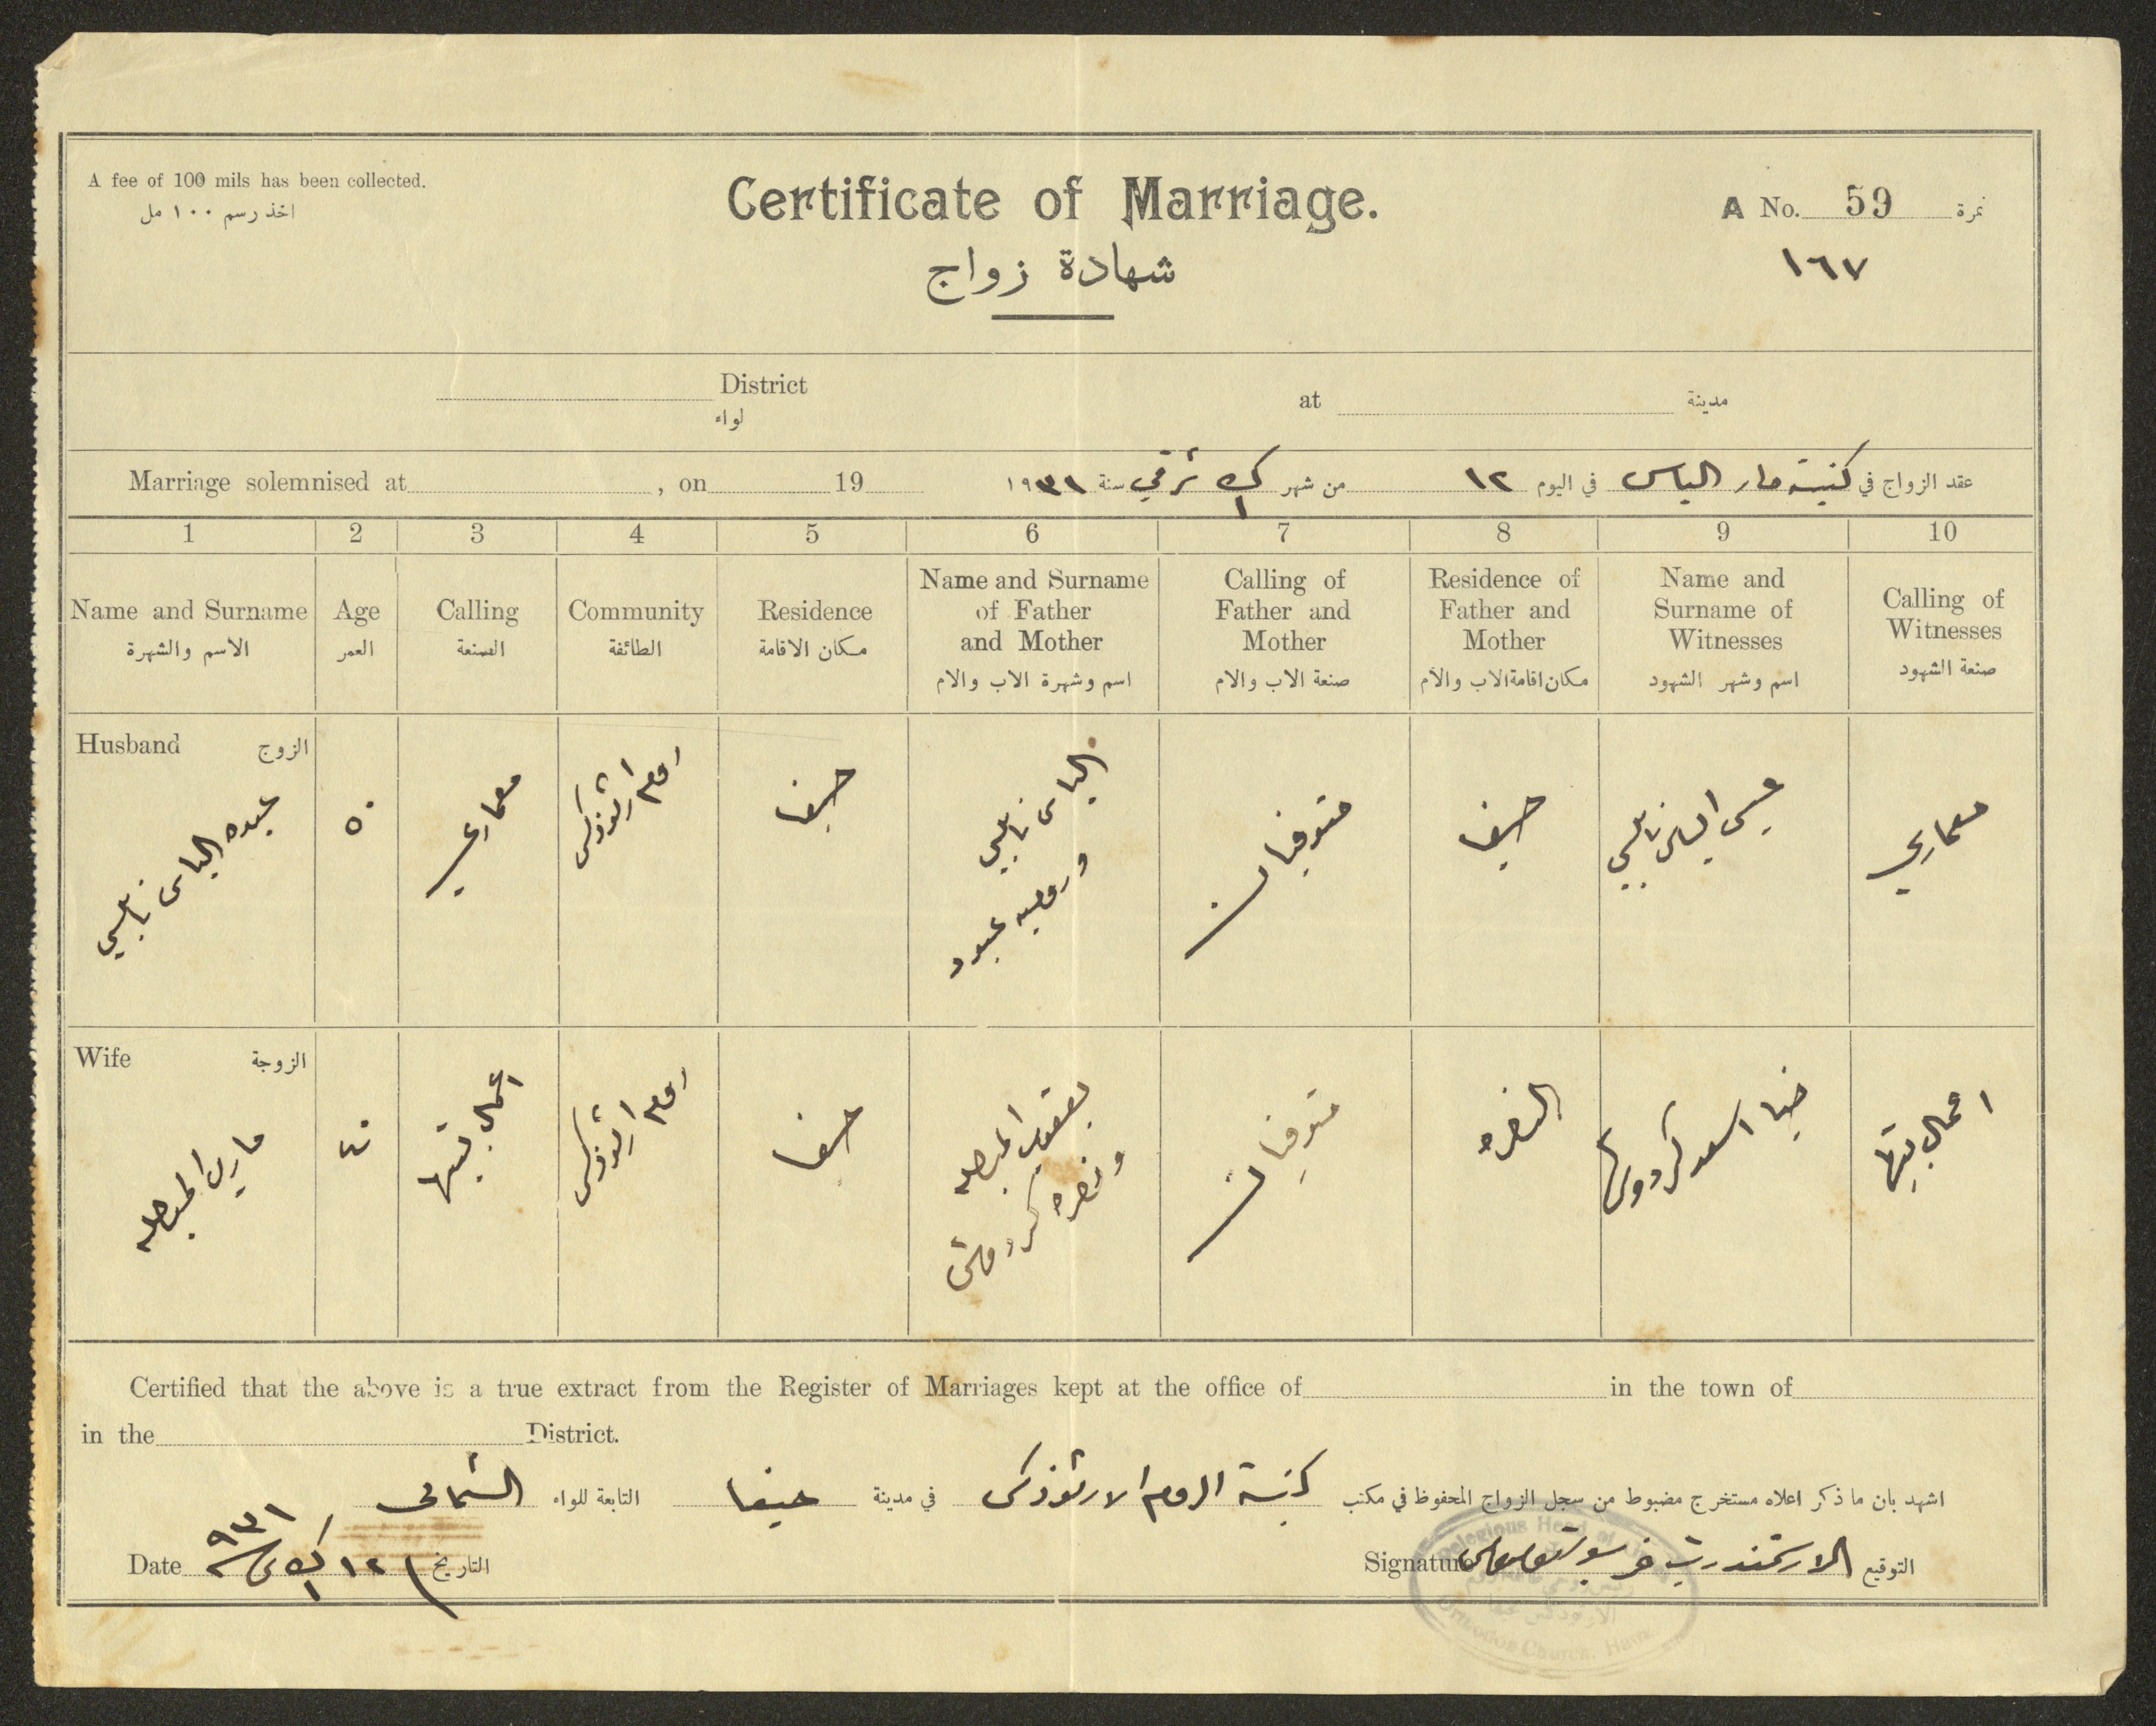 A fee of 100 mils has been collected.
اخذ رسم ١٠٠ مل
Certificate of Marriage.
شهادة زواج
A No. 59 نمرة
١٦٧
District
لواء
at مدينة
Marriage solemnised at , on 19
عقد الزواج في كنيسة مار الياس في اليوم ١٢ من شهر ك١ شرقي سنة ١٩٣١
1 2 3 4 5 6 7 8 9 10
Name and Surname
الاسم والشهرة
Age
العمر
Calling
الصنعة
Community
الطائفة
Residence
مكان الاقامة
Name and Surname
of Father
and Mother
اسم وشهرة الاب والام
Calling of
Father and
Mother
صنعة الاب والام
Residence of
Father and
Mother
مكان اقامة الاب والام
Name and
Surname of
Witnesses
اسم وشهر الشهود
Calling of
Witnesses
صنعة الشهود
Husband الزوج
عبده الياس نابلسي
٥٠
معماري
روم ارثوذكس
حيفا
الياس نابلسي
و عبود
متوفيان
حيفا
عيسى الياس نابلسي
معماري
Wife الزوجة
ماري
٤٠
اعمال بيتها
روم ارثوذكس
حيفا
يعقوب
ونصره كردوش
متوفيان
الناصره
اسعد كردوش
اعمال بيتها
Certified that the above is a true extract from the Register of Marriages kept at the office of in the town of
in the District.
اشهد بان ما ذكر اعلاه مستخرج مضبوط من سجل الزواج المحفوظ في مكتب كنيسة الروم الارثوذكس في مدينة حيفا التابعة للواء الشمالي
Date ١٢ ك١ ٩٣١ التاريخ
Signature الارشمندريت التوقيع
Religious Head of
Orthodox Church. Haifa